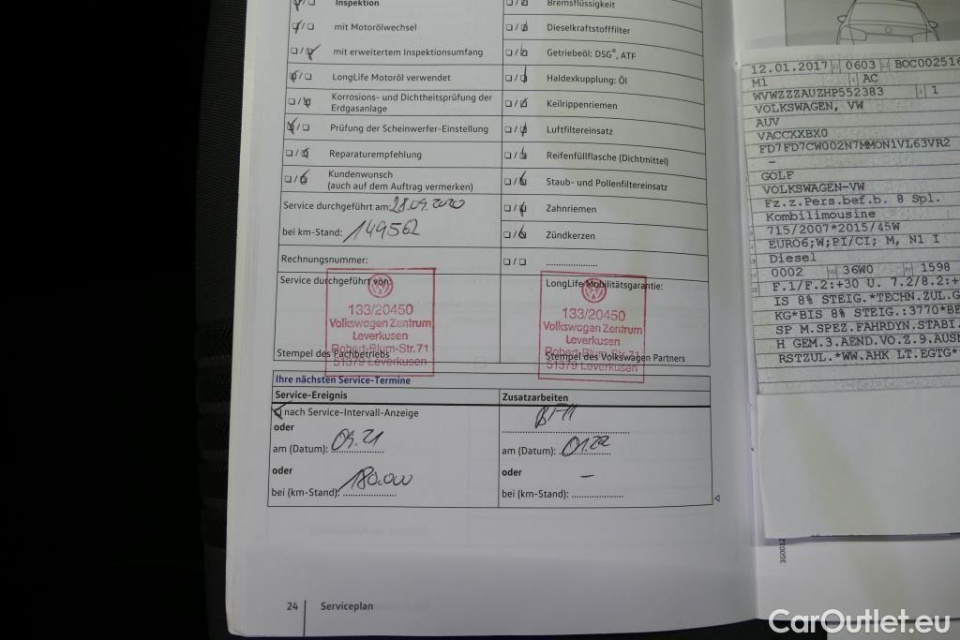 Inspektion
mit Motorölwechsel
mit erweitertem Inspektionsumfang
LongLife Motoröl verwendet
Korrosions- und Dichtheitsprüfung der
Erdgasanlage
Prüfung der Scheinwerfer-Einstellung
Reparaturempfehlung
Kundenwunsch
(auch auf dem Auftrag vermerken)
Service durchgeführt am: 28.09.2020
bei km-Stand: 149562
Rechnungsnummer:
Service durchgeführt von:
133/20450
Volkswagen Zentrum
Leverkusen
Robert-Blum-Str.71
51379 Leverkusen
Stempel des Fachbetriebs
Bremsflüssigkeit
Dieselkraftstofffilter
Getriebeöl: DSG®, ATF
Haldexkupplung: Öl
Keilrippenriemen
Luftfiltereinsatz
Reifenfüllflasche (Dichtmittel)
Staub- und Pollenfiltereinsatz
Zahnriemen
Zündkerzen
LongLife Mobilitätsgarantie:
133/20450
Volkswagen Zentrum
Leverkusen
Robert-Blum-Str.71
51379 Leverkusen
Stempel des Volkswagen Partners
Ihre nächsten Service-Termine
Service-Ereignis
nach Service-Intervall-Anzeige
oder
am (Datum): 09.21
oder
bei (km-Stand): 180.000
Zusatzarbeiten
am (Datum): 01.22
oder
–
bei (km-Stand):
24 Serviceplan
12.01.2017 0603 BOC002516
M1 AC
WVWZZZAUZHP552383 1
VOLKSWAGEN, VW
AUV
VACCXXBX0
FD7FD7CW002N7MMON1VL63VR2
–
GOLF
VOLKSWAGEN-VW
Fz.z.Pers.bef.b. 8 Spl.
Kombilimousine
715/2007*2015/45W
EURO6;W;PI/CI; M, N1 I
Diesel
0002 36W0 1598
F.1/F.2:+30 U. 7.2/8.2:+
IS 8% STEIG.*TECHN.ZUL.G
KG*BIS 8% STEIG.:3770*BE
SP M.SPEZ.FAHRDYN.STABI.
H GEM.3.AEND.VO.Z.9.AUS
RSTZUL.*WW.AHK LT.EGTG*
CarOutlet.eu